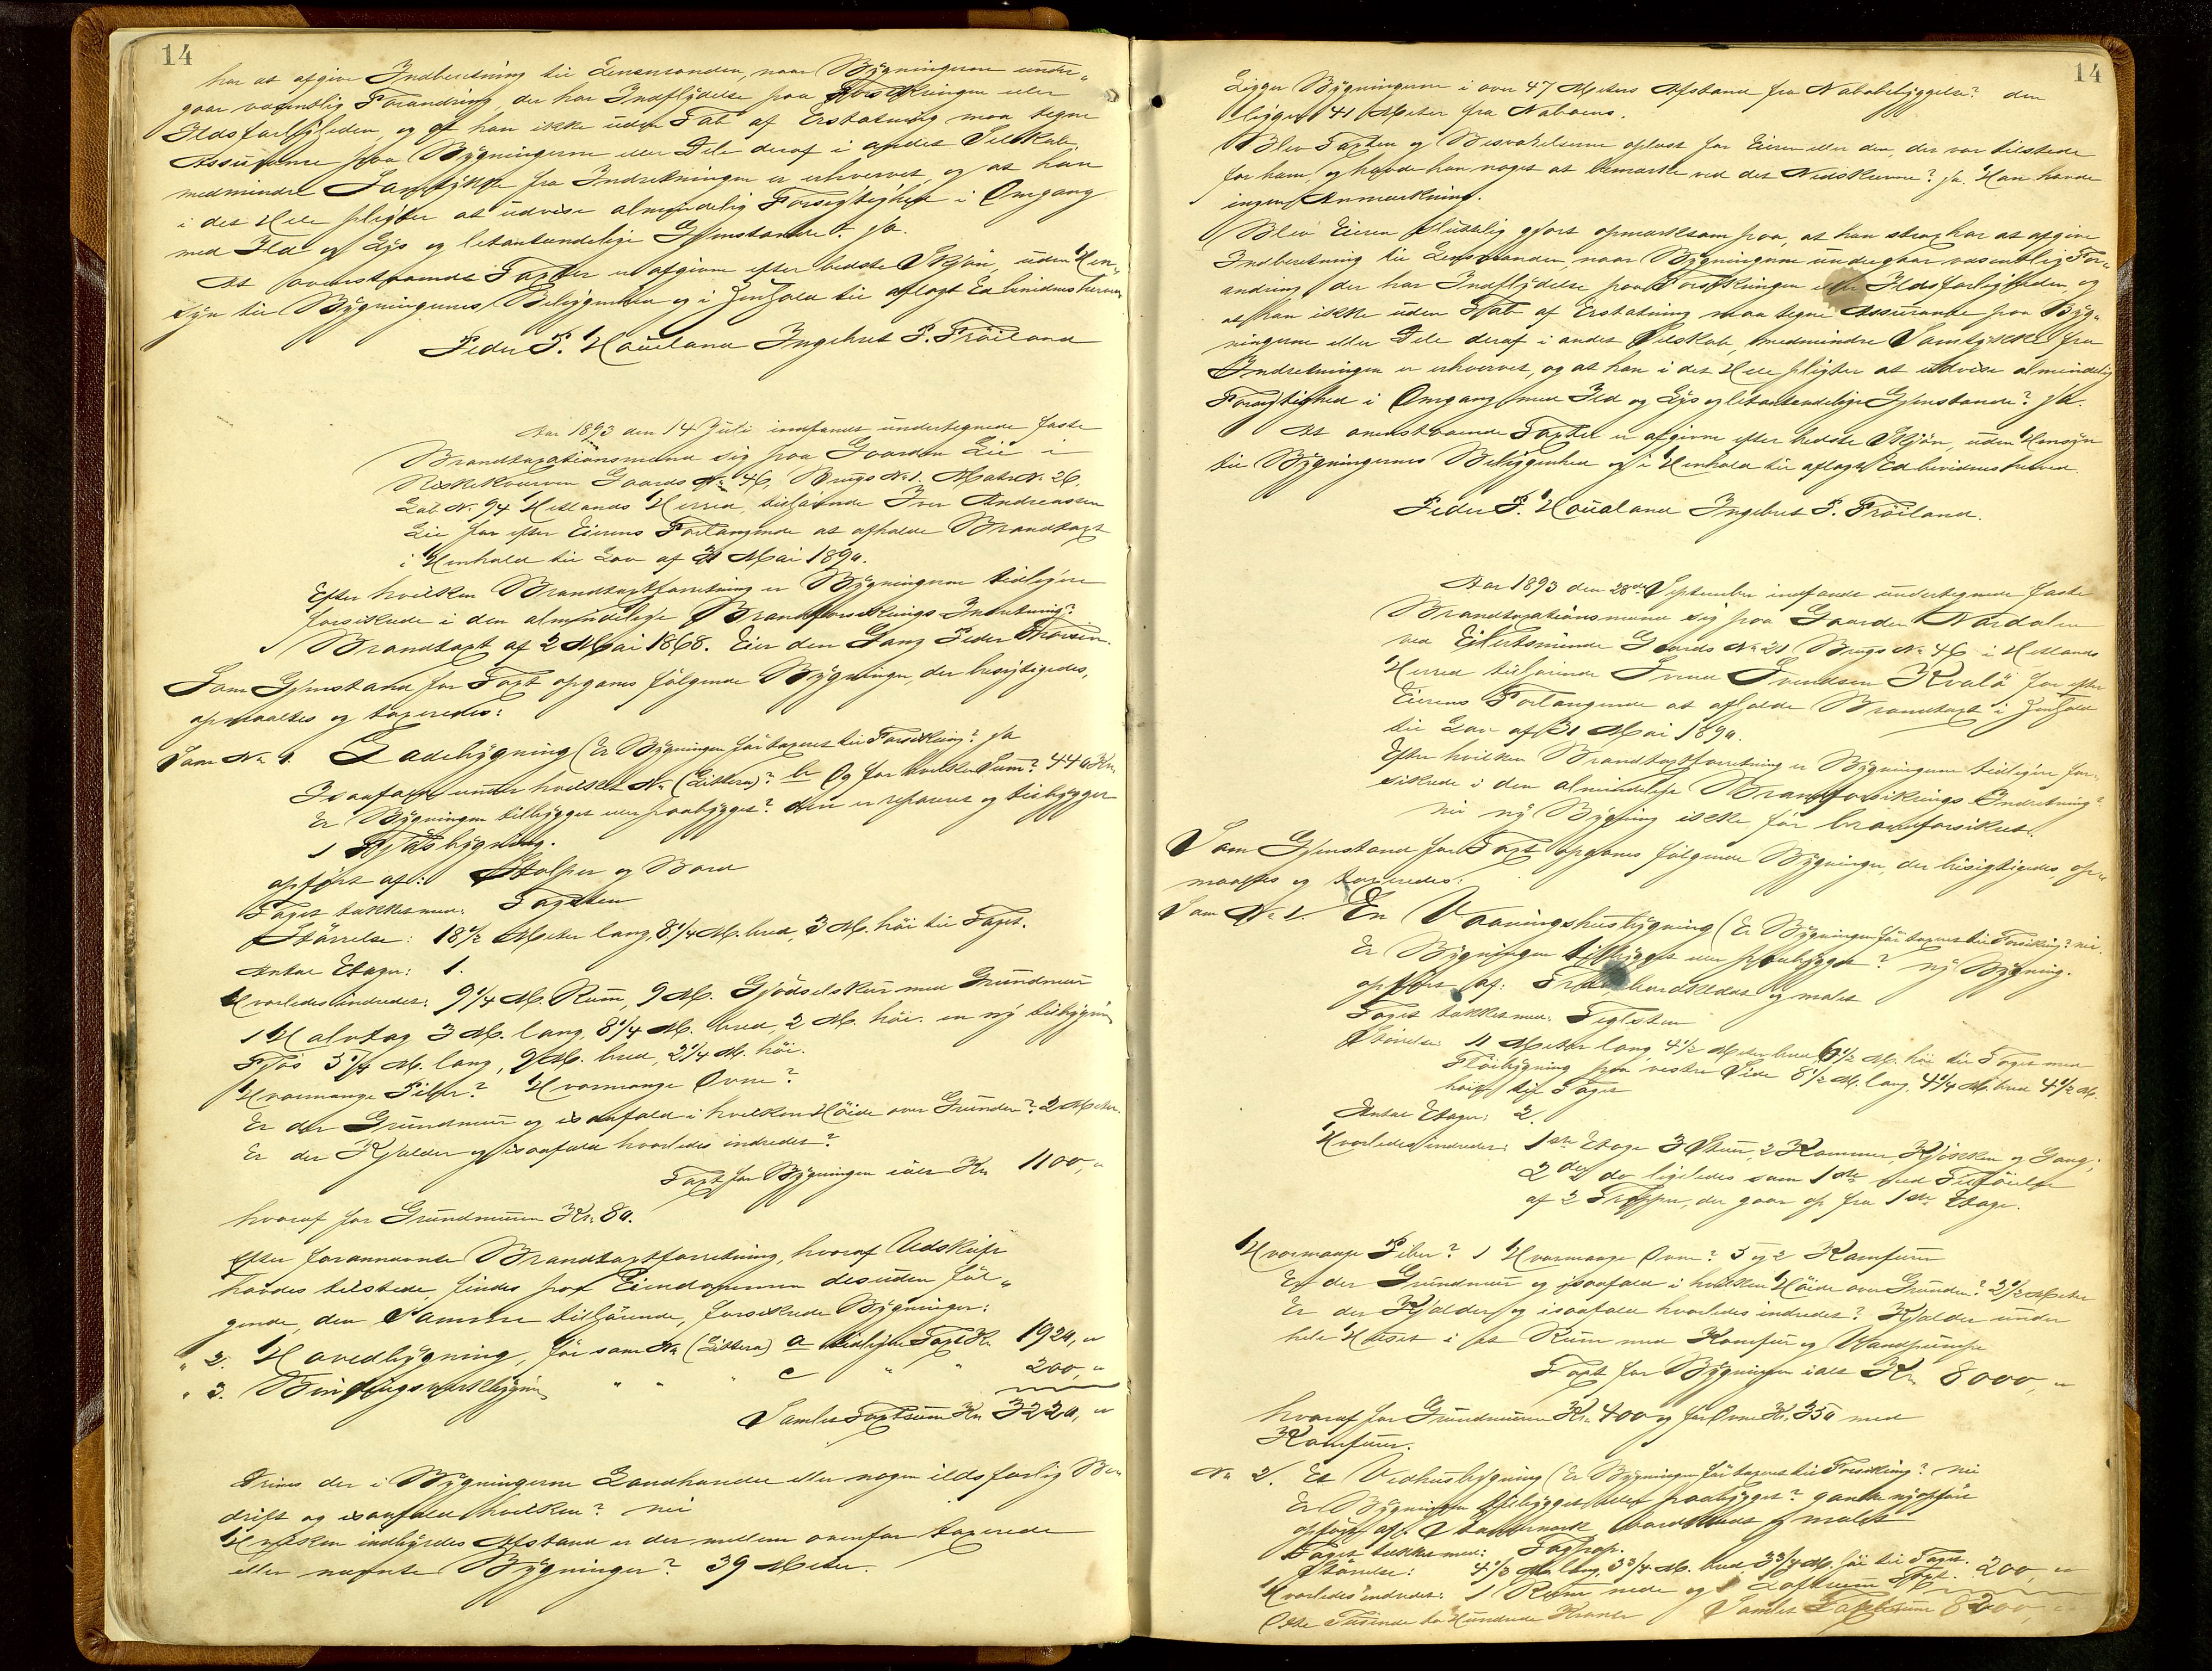 14
har at afgive Indberetning til Lensmanden, naar Bygningerne under-
gaar væsentlig Forandring, der har Indflydelse paa Forsikringen eller
Ildsfarligheden, og at han ikke uden Tab af Erstatning maa tegne
Assurance paa Bygningerne eller Dele deraf i andet Selskab,
medmindre Samtykke fra Indretningen er erhvervet, og at han
i det Hele pligter at udvise almindelig Forsigtighed i Omgang
med Ild og Lys og letantændelige Gjenstande? Ja.
At ovenstaaende Taxter er afgivne efter bedste Skjøn, uden Hen-
syn til Bygningernes Beliggenhed og i Henhold til aflagt Ed bevidnes herved
Peder P. Haueland Ingebret P. Fröiland
Aar 1893 den 14 Juli indfandt undertegnede faste
Brandtaxationsmænd sig paa Gaarden Lie i
Riskekvarven Gaards No 46, Brugs No 1. Matr No 26.
Løb No 94 Hetlands Herred, tilhørende Iver Andreassen
Lie for efter Eierens Forlangende at afholde Brandtaxt
i Henhold til Lov af 31 Mai 1890.
Efter hvilken Brandtaxtforretning er Bygningerne tidligere
forsikrede i den almindelige Brandforsikrings Indretning?
Brandtaxt af 2 Mai 1868. Eier den Gang Peder
Som Gjenstand for Taxt opgaves følgende Bygninger, der besigtigedes,
opmaaltes og taxeredes:
Som No 1. Ladebygning (Er Bygningen før taxeret til Forsikring? Ja
Isaafald under hvilket No (Littera)? b Og for hvilken Sum? 440 Kr.
Er Bygningen tilbygget eller paabygget? den er repareret og tilbygget
1 Fjøsbygning.
opført af: Stolper og Bord
Taget tækket med: Tagsten
Størrelse: 18½ Meter lang, 8¼ M. bred, 3 M. høi til Taget.
Antal Etager: 1.
Hvorledes indredet: 9¼ M. Rum, 9 M. Gjødselskur med Grundmur
1 Halvtag 3 M. lang, 8¼ M. bred, 2 M. høi. en ny tilbygning
Fjøs M. lang, 9 M. bred, 2¼ M. høi.
Hvormange Piber? Hvormange Ovne?
Er der Grundmur og isaafald i hvilken Høide over Grunden? 2 Meter.
Er der Kjælder og isaafald hvorledes indredet?
Taxt for Bygningen ialt Kr. 1100,"
hvoraf for Grundmuren Kr. 80.
Efter forannævnte Brandtaxtforretning, hvoraf Udskrift
havdes tilstede, findes paa Eiendommen desuden føl-
gende, den Samme tilhørende, forsikrede Bygninger:
" 2. Hovedbygning, før som No (Littera) a tidligere Taxt Kr. 1920,"
" 3. Bindingsværksbygning " " " c " " 200,"
Samlet Taxtsum Kr. 3220,"
Drives der i Bygningerne Landhandel eller nogen ildsfarlig Be-
drift og isaafald hvilken? nei
Hvilken indbyrdes Afstand er der mellem ovenfor taxerede
eller nævnte Bygninger? 39 Meter.
14
Ligger Bygningerne i over 47 Meters Afstand fra Nabobebyggelse? den
ligger 41 Meter fra Naboens.
Blev Taxten og Besvarelserne oplæst for Eieren eller den, der var tilstede
for ham, og havde han noget at bemærke ved det Nedskrevne? Ja. Han havde
ingen Anmærkning.
Blev Eieren sluttelig gjort opmærksom paa, at han strax har at afgive
Indberetning til Lensmanden, naar Bygningerne undergaar væsentlig For-
andring, der har Indflydelse paa Forsikringen eller Ildsfarligheden, og
at han ikke uden Tab af Erstatning maa tegne Assurance paa Byg-
ningerne eller Dele deraf i andet Selskab, medmindre Samtykke fra
Indretningen er erhvervet, og at han i det Hele pligter at udvise almindelig
Forsigtighed i Omgang med Ild og Lys og letantændelige Gjenstande? Ja.
At ovenstaaende Taxter er afgivne efter bedste Skjøn, uden Hensyn
til Bygningernes Beliggenhed og i Henhold til aflagt Ed bevidnes herved.
Peder P. Haueland Ingebret P. Fröiland.
Aar 1893 den 28de September indfandt undertegnede faste
Brandtaxationsmænd sig paa Gaarden Nordalen
ved Eilertsminde Gaards No 21 Brugs No 46 i Hetlands
Herred tilhørende Svend Svendsen Kvalø for efter
Eierens Forlangende at afholde Brandtaxt i Henhold
til Lov af 31 Mai 1890.
Efter hvilken Brandtaxtforretning er Bygningerne tidligere for-
sikrede i den almindelige Brandforsikrings Indretning?
nei ny Bygning ikke før brandforsikret.
Som Gjenstand for Taxt opgaves følgende Bygninger, der besigtigedes, op-
maaltes og taxeredes:
Som No 1. En Vaaningshusbygning (Er Bygningen før taxeret til Forsikring? nei.
Er Bygningen tilbygget eller paabygget? ny Bygning.
opført af: Træ, bordklædt og malet
Taget tækket med: Teglsten
Størrelse: 11 Meter lang, 4½ Meter bred 6½ M. høi til Taget med
Fløibygning paa vestre Side 8½ M. lang, 4¼ M. bred 4½ M.
høi til Taget
Antal Etager: 2.
Hvorledes indredet: 1ste Etage 3 Stuer, 2 Kammer, Kjøkken og Gang;
2den do ligeledes som 1ste med Tilføielse
af 2 Trapper, der gaar op fra 1ste Etage.
Hvormange Piber? 1 Hvormange Ovne? 5 og 2 Komfurer
Er der Grundmur og isaafald i hvilken Høide over Grunden? 2½ Meter
Er der Kjælder og isaafald hvorledes indredet? Kjælder under
hele Huset i et Rum med Komfur og Vandpumpe
Taxt for Bygningen ialt Kr. 8000,"
hvoraf for Grundmuren Kr. 400 og for Ovne Kr. 350 med
Komfurer.
No 2. Et Vedhusbygning (Er Bygningen før taxeret til Forsikring? nei
Er Bygningen tilbygget eller paabygget? ganske nyopført
opført af: Stolperværk bordklædt og malet
Taget tækket med: Tagpap.
Størrelse: 4½ M. lang, 3¾ M. bred, 3¾ M. høi til Taget. 200,"
Hvorledes indredet: 1 Rum nede og 1 Loftsrum Taxt.
Otte Tusinde to Hundrede Kroner Samlet Taxtsum 8200,"